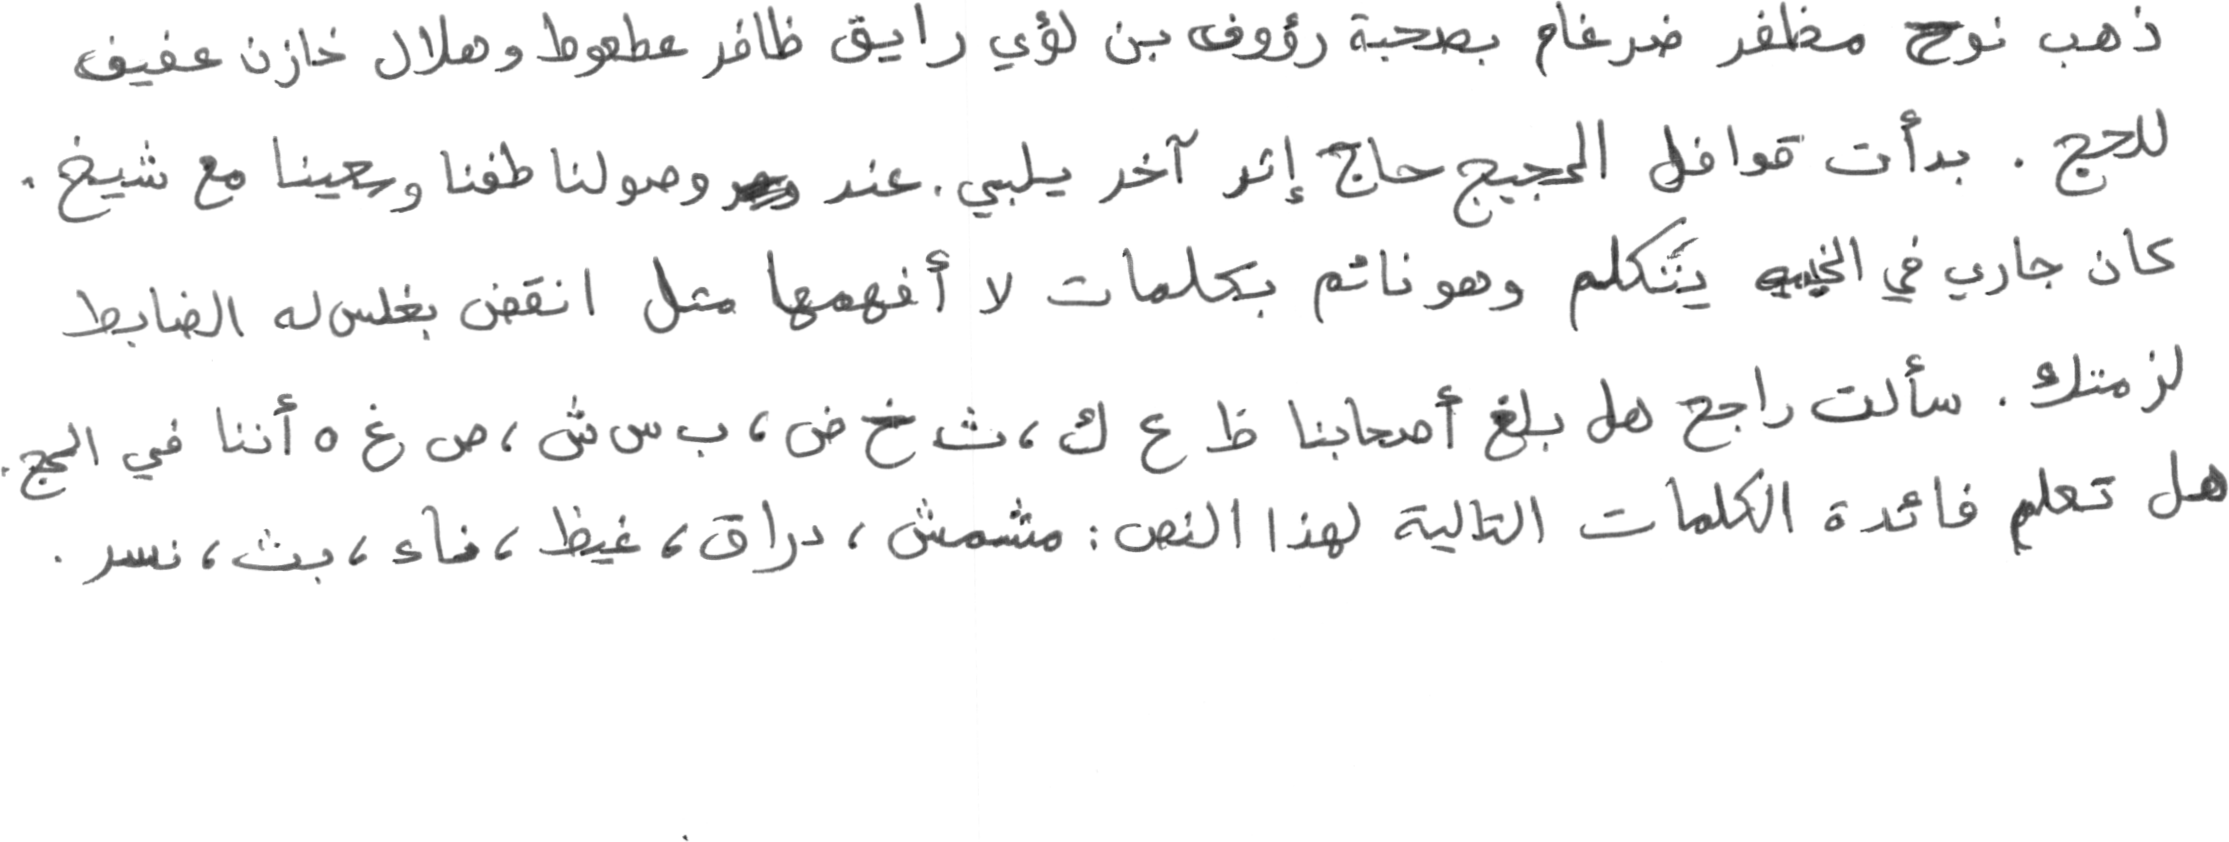 ذهب نوح مظفر ضرغام بصحبة رؤوف بن لؤي رايق ظافر عطعوط وهلال خازن عفيف
للحج . بدأت قوافل الحجيج حاج إثر آخر يلبي . عند وصولنا طفنا وسعينا مع شيخ .
كان جاري في يتكلم وهو نائم بكلمات لا أفهمها مثل انقض بغلس له الضابط
لزمتك . سألت راجح هل بلغ أصحابنا ظ ع ك ، ث خ ض ، ب س ش ، ص غ ه أننا في الحج .
هل تعلم فائدة الكلمات التالية لهذا النص : مشمش ، دراق ، غيظ ، ضاء ، بث ، نسر .